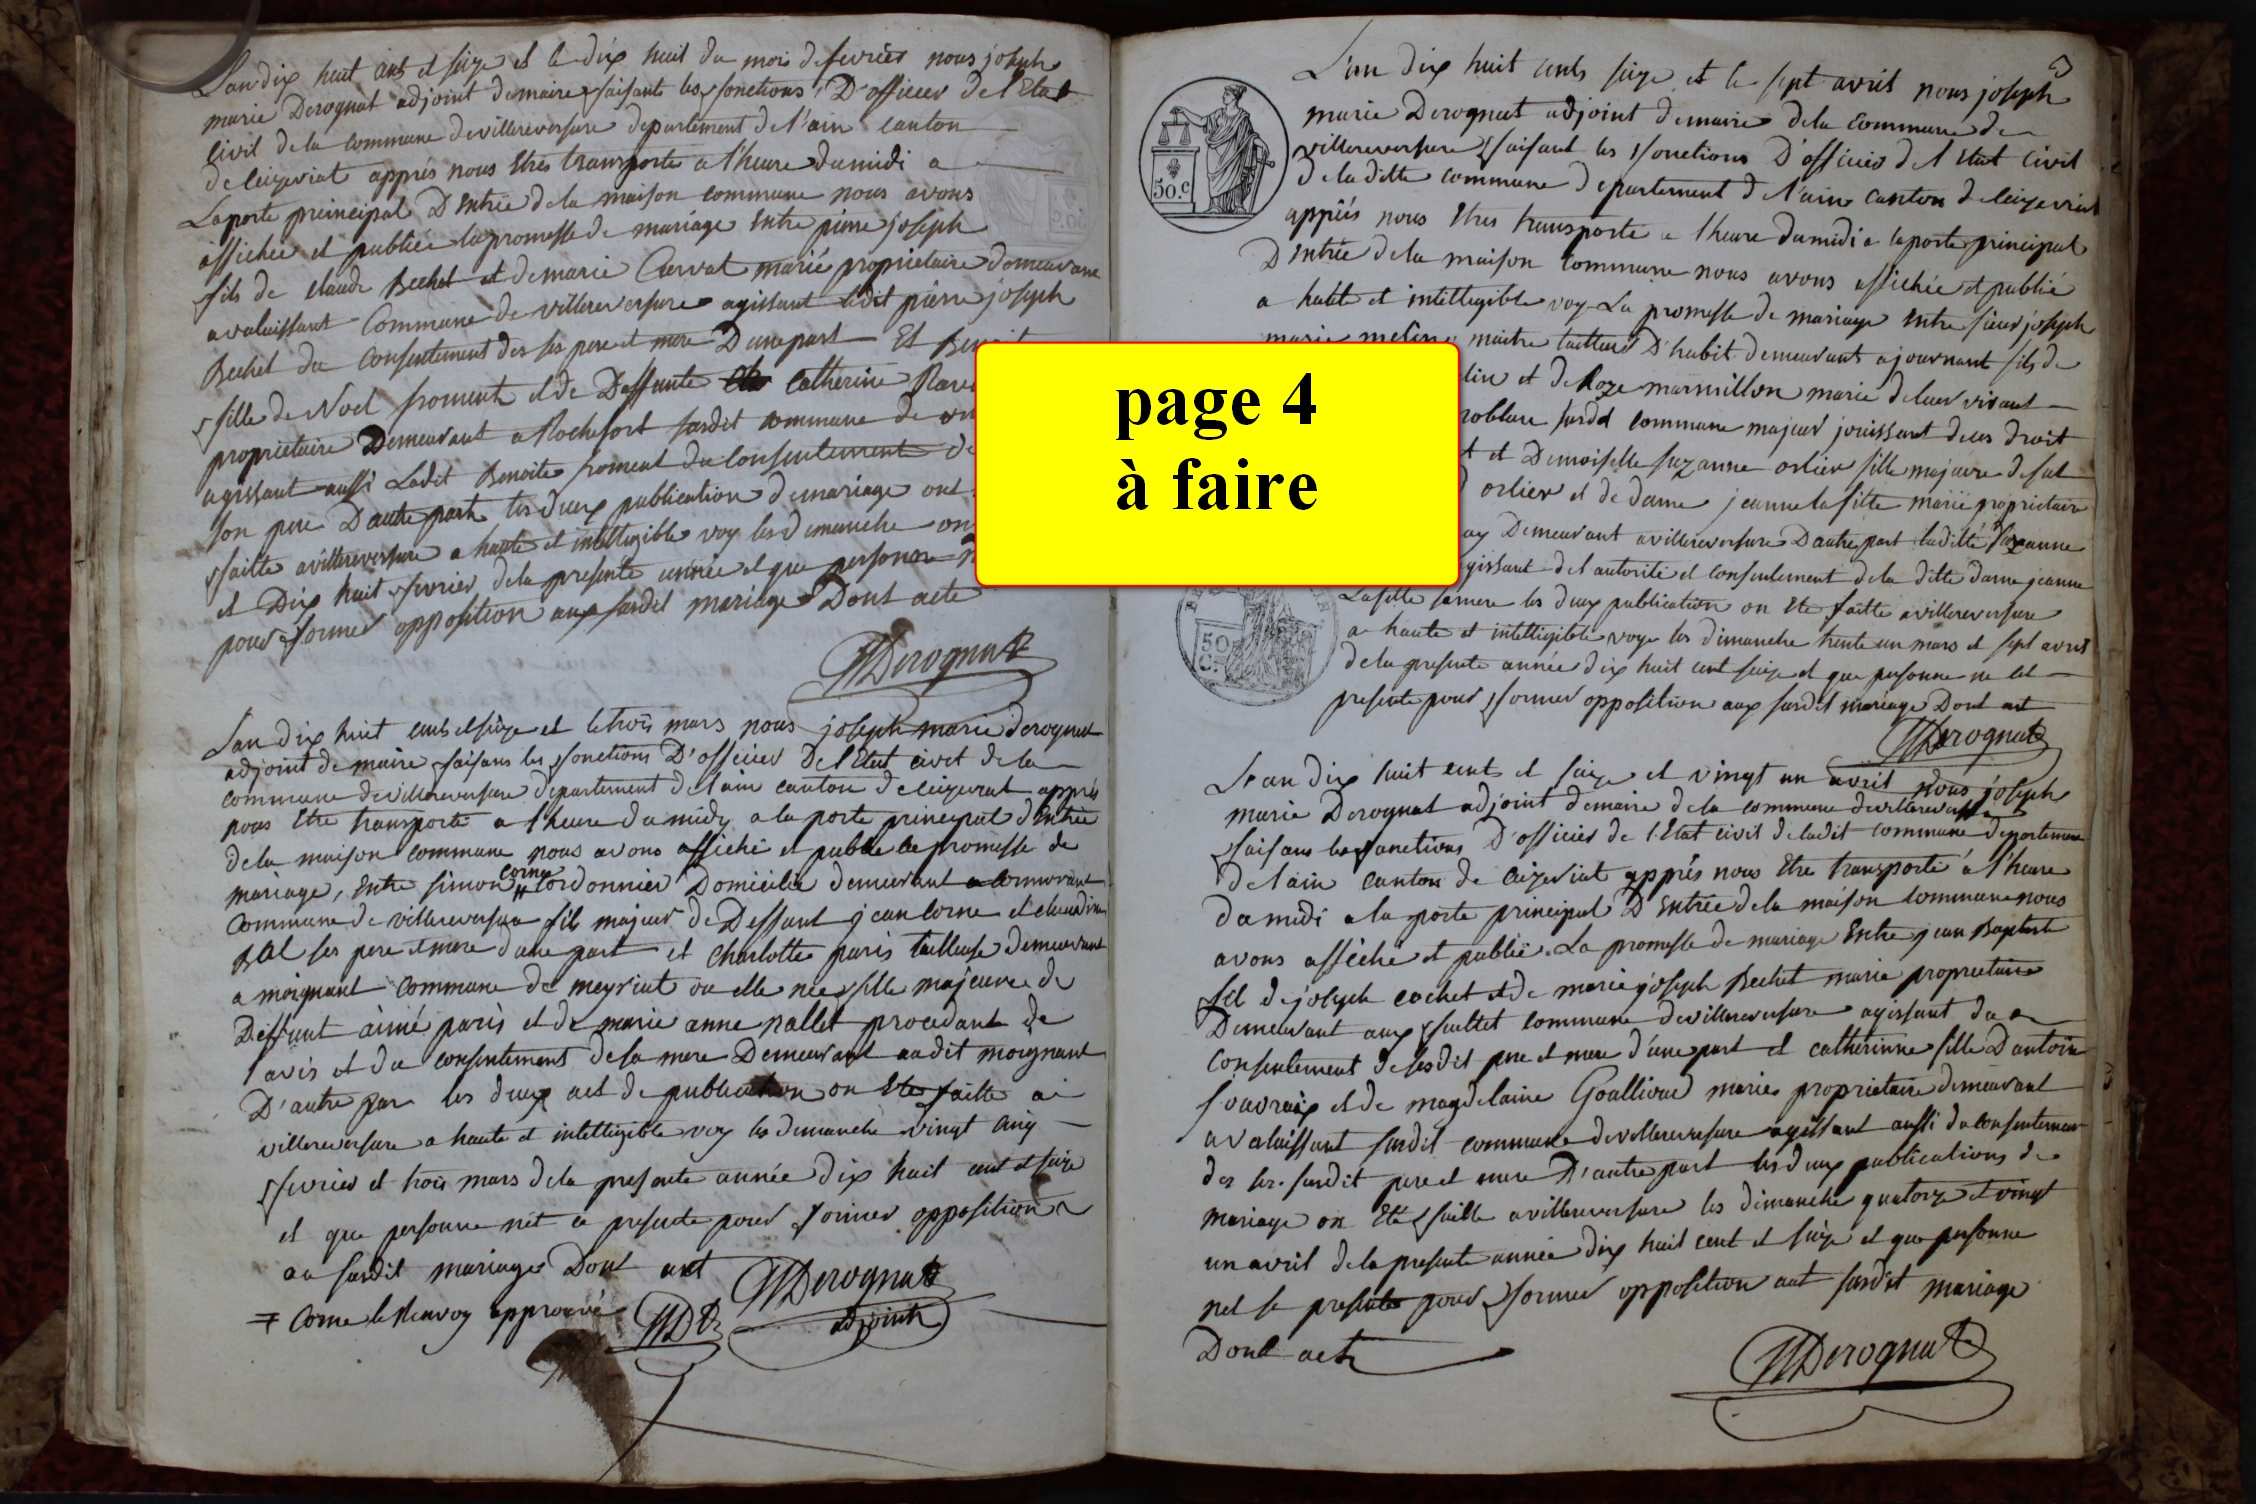 L'an dix huit cents et seize et le dix huit du mois de fevrier nous joseph
marie Derognat adjoint de maire faisants les fonctions D'officier de l'Etat
Civil de la commune de villereversure departement de l'ain canton
de Ceizeriat apprés nous Etres transporté a l'heure du midi a
La porte preincipal D'Entrée de la maison commune nous avons
affichée et publiée la promesse de mariage Entre pierre joseph
fils de claude Bechet et de marie Cervat marié proprietaire demeurant
avalaissant Commune de villereversure agissant Ledit pierre joseph
Bechet du consentement des ses pere et mere D'une part Et
fille de Noel froment et de Deffunte Catherine
proprietaire Demeurant a Rochefort susdit commune de
agissant aussi Ladit Benoite froment du Consentement de
son pere D'autre part les deux publication de mariage ont
faitte avillereversure a haute et intelligible voy les dimanche
et Dix huit fevrier de la presente année et que personne
pour former opposition aux susdit mariage Dont acte
JMDerognat
L'an dix huit cents et seize et le trois mars nous joseph marie derognat
adjoint de maire faisans les fonctions D'officier De l'Etat civil de la
commune de villereversure departement de l'ain canton de ceizeriat apprés
nous Etre transporté a l'heure du midy a la porte principal d'Entrée
de la maison commune nous avons affiché et publié la promesse de
mariage, Entre simon corne cordonnier Domicilié demeurant
commune de villereversure fils majeur de Deffunt jean Corne et claudine
BAL ses pere et mere d'une part et charlotte paris tailleuse demeurant
a moignant commune de meyriat ou elle née fille majeure de
Deffunt aimé paris et de marie anne nallet procedant de
l'avis et du consentement de sa mere Demeurant audit moignant
D'autre par les deux act de publication on Ete faitte a
villereversure a haute et intelligible voy les dimanche vingt cinq
fevrier et trois mars de la presente année dix huit cent et seize
et que personne n'et ce presente pour former opposition
au susdit mariage Dont act JMDerognat
= Corne le Renvoy approuvé JMD adjoint
3
L'an dix huit cents seize et le sept avril nous joseph
marie Derognat adjoint de maire de la Commune de
villereversure faisant les fonctions D'officier de l'Etat Civil
de la ditte commune departement de l'ain canton de Ceizeriat
apprés nous Etres transporté a l'heure du midi a la porte principal
D'Entrée de la maison Commune nous avons affichée et publié
a haute et intelligible voy La promesse de mariage Entre sieur joseph
marie maitre tailleur D'habit demeurant a journant fils de
et de Roze marmillon marié de leur vivant
susdit commune majeur jouissant de ces droit
et Demoiselle suzanne orlier fille majeure de
orlier et de dame jeanne lafille marié proprietaire
Demeurant avillereversure D'autre part laditte suzanne
de l'autorité et consentement de la ditte dame jeanne
Lafille sa mere les deux publication on Ete faitte avillereversure
a haute et intelligible voye les dimanche trente un mars et sept avril
de la presente année dix huit cent seize et que personne ne cet
presente pour former opposition aux susdit mariage Dont act
JMDerognat
L'an dix huit cents et seize et vingt un avril Nous joseph
marie Derognat adjoint de maire de la commune de villereversure
faisans les fonctions D'officier de l'Etat civil de ladit commune departement
de l'ain canton de Ceizeriat apprés nous Etre transporté a l'heure
du midi a la porte principal D'Entrée de la maison commune nous
avons affiché et publié La promesse de mariage Entre jean Baptiste
fil de joseph cochet et de marie joseph Bechet marié proprietaire
Demeurant aux commune de villereversure agissant du
Consentement de sesdit pere et mere d'une part et catherinne fille D'antoine
et de magdelaine marie proprietaire demeurant
avalaissant susdit commune de villereversure agissant aussi du consentement
des ses susdit pere et mere D'autre part les deux publications de
mariage on Eté faitte avillereversure les dimanche quatorze et vingt
un avril de la presente année dix huit cent et seize et que personne
net se presenté pour former opposition aut susdit mariage
Dont acte
JMDerognat
50.c
50
C.
page 4
à faire